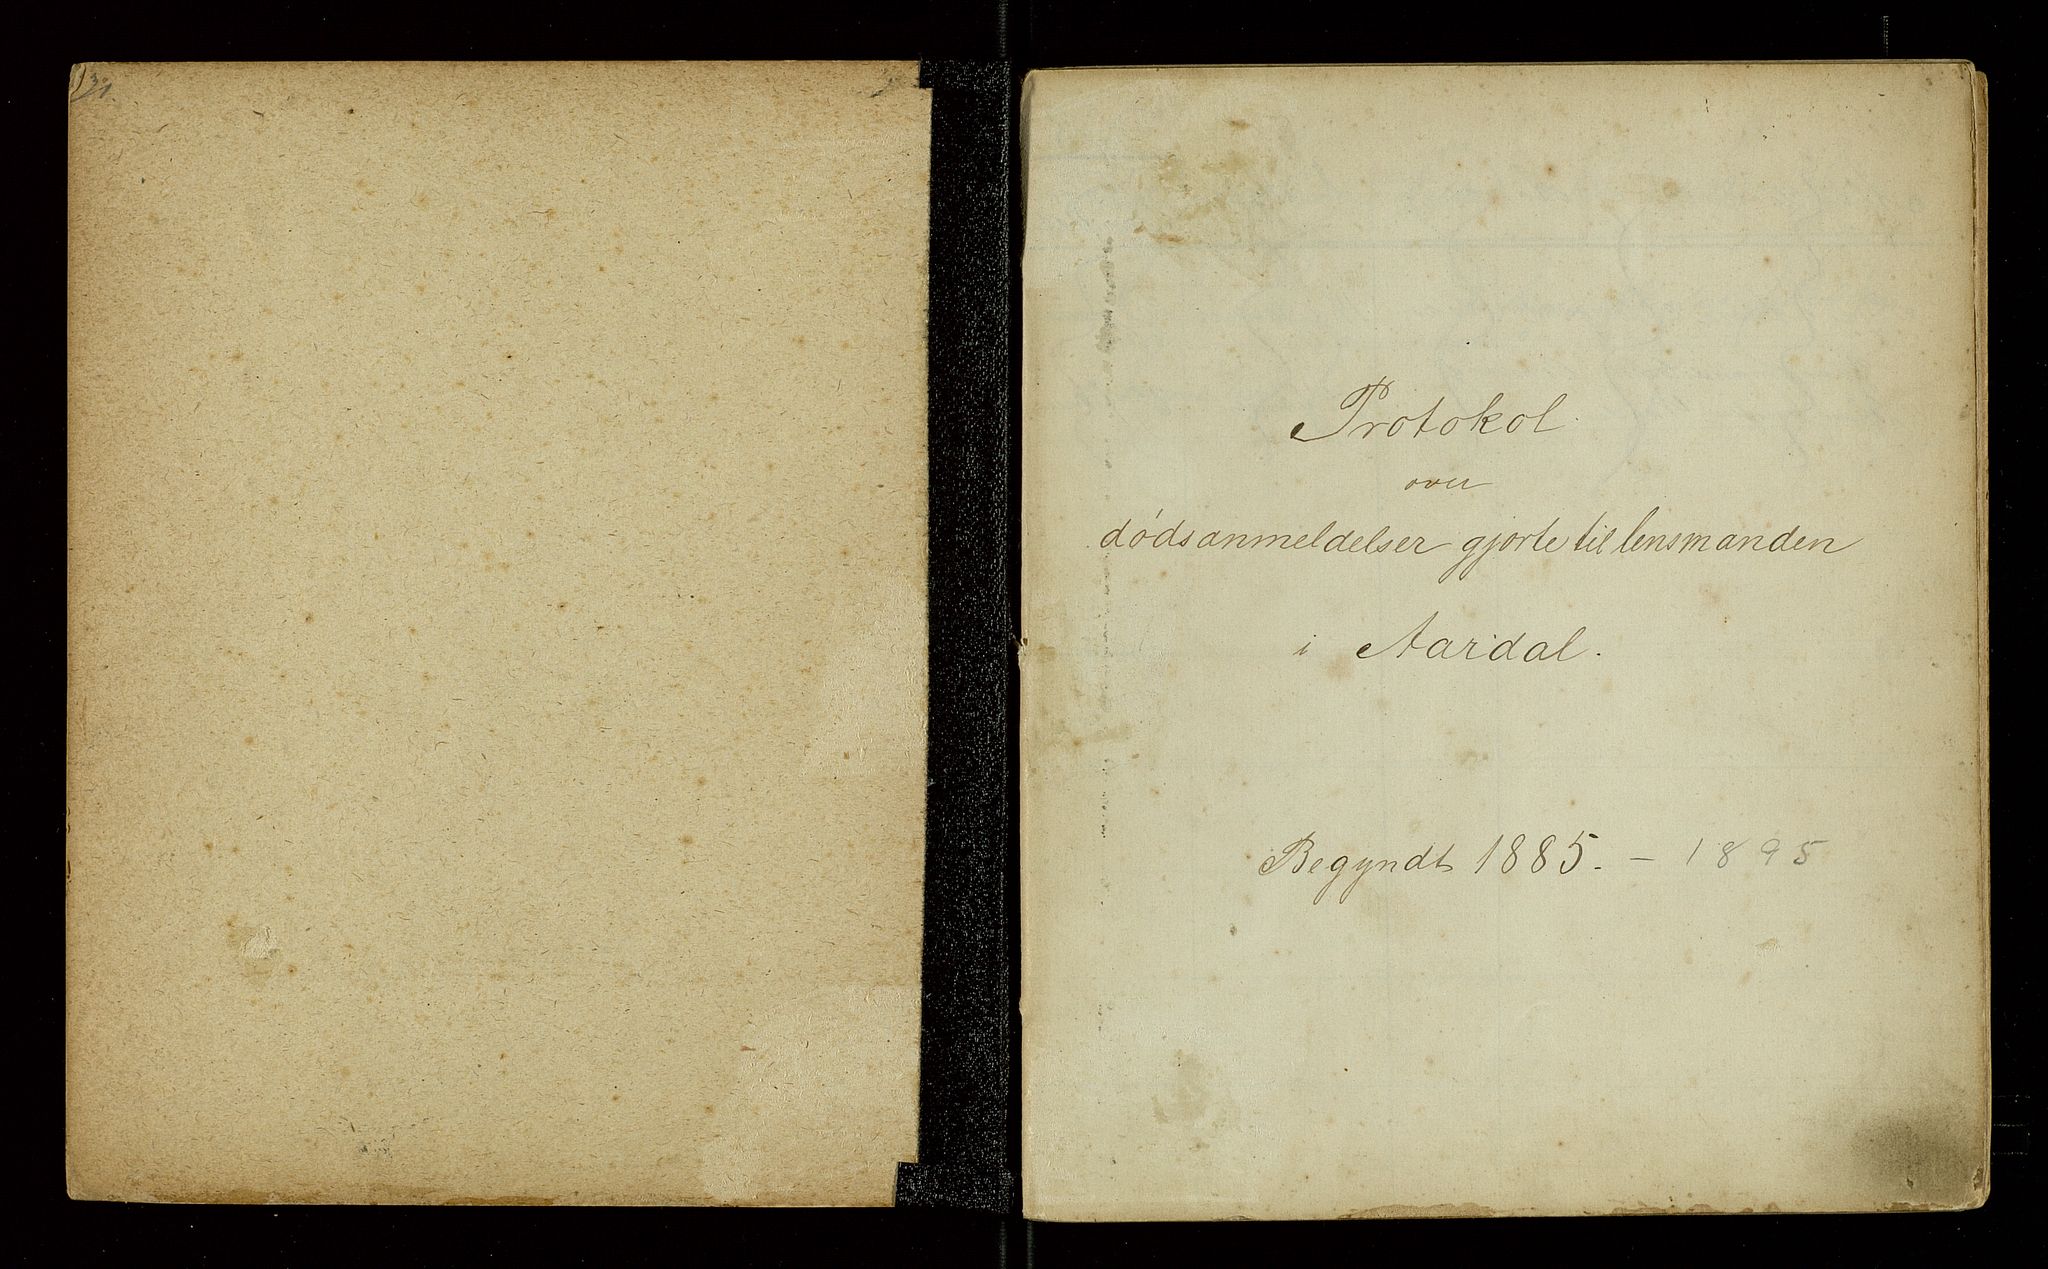 Protokol.
over
dødsanmeldelser gjorte til lensmanden
i Aardal.
Begyndt 1885. – 1895